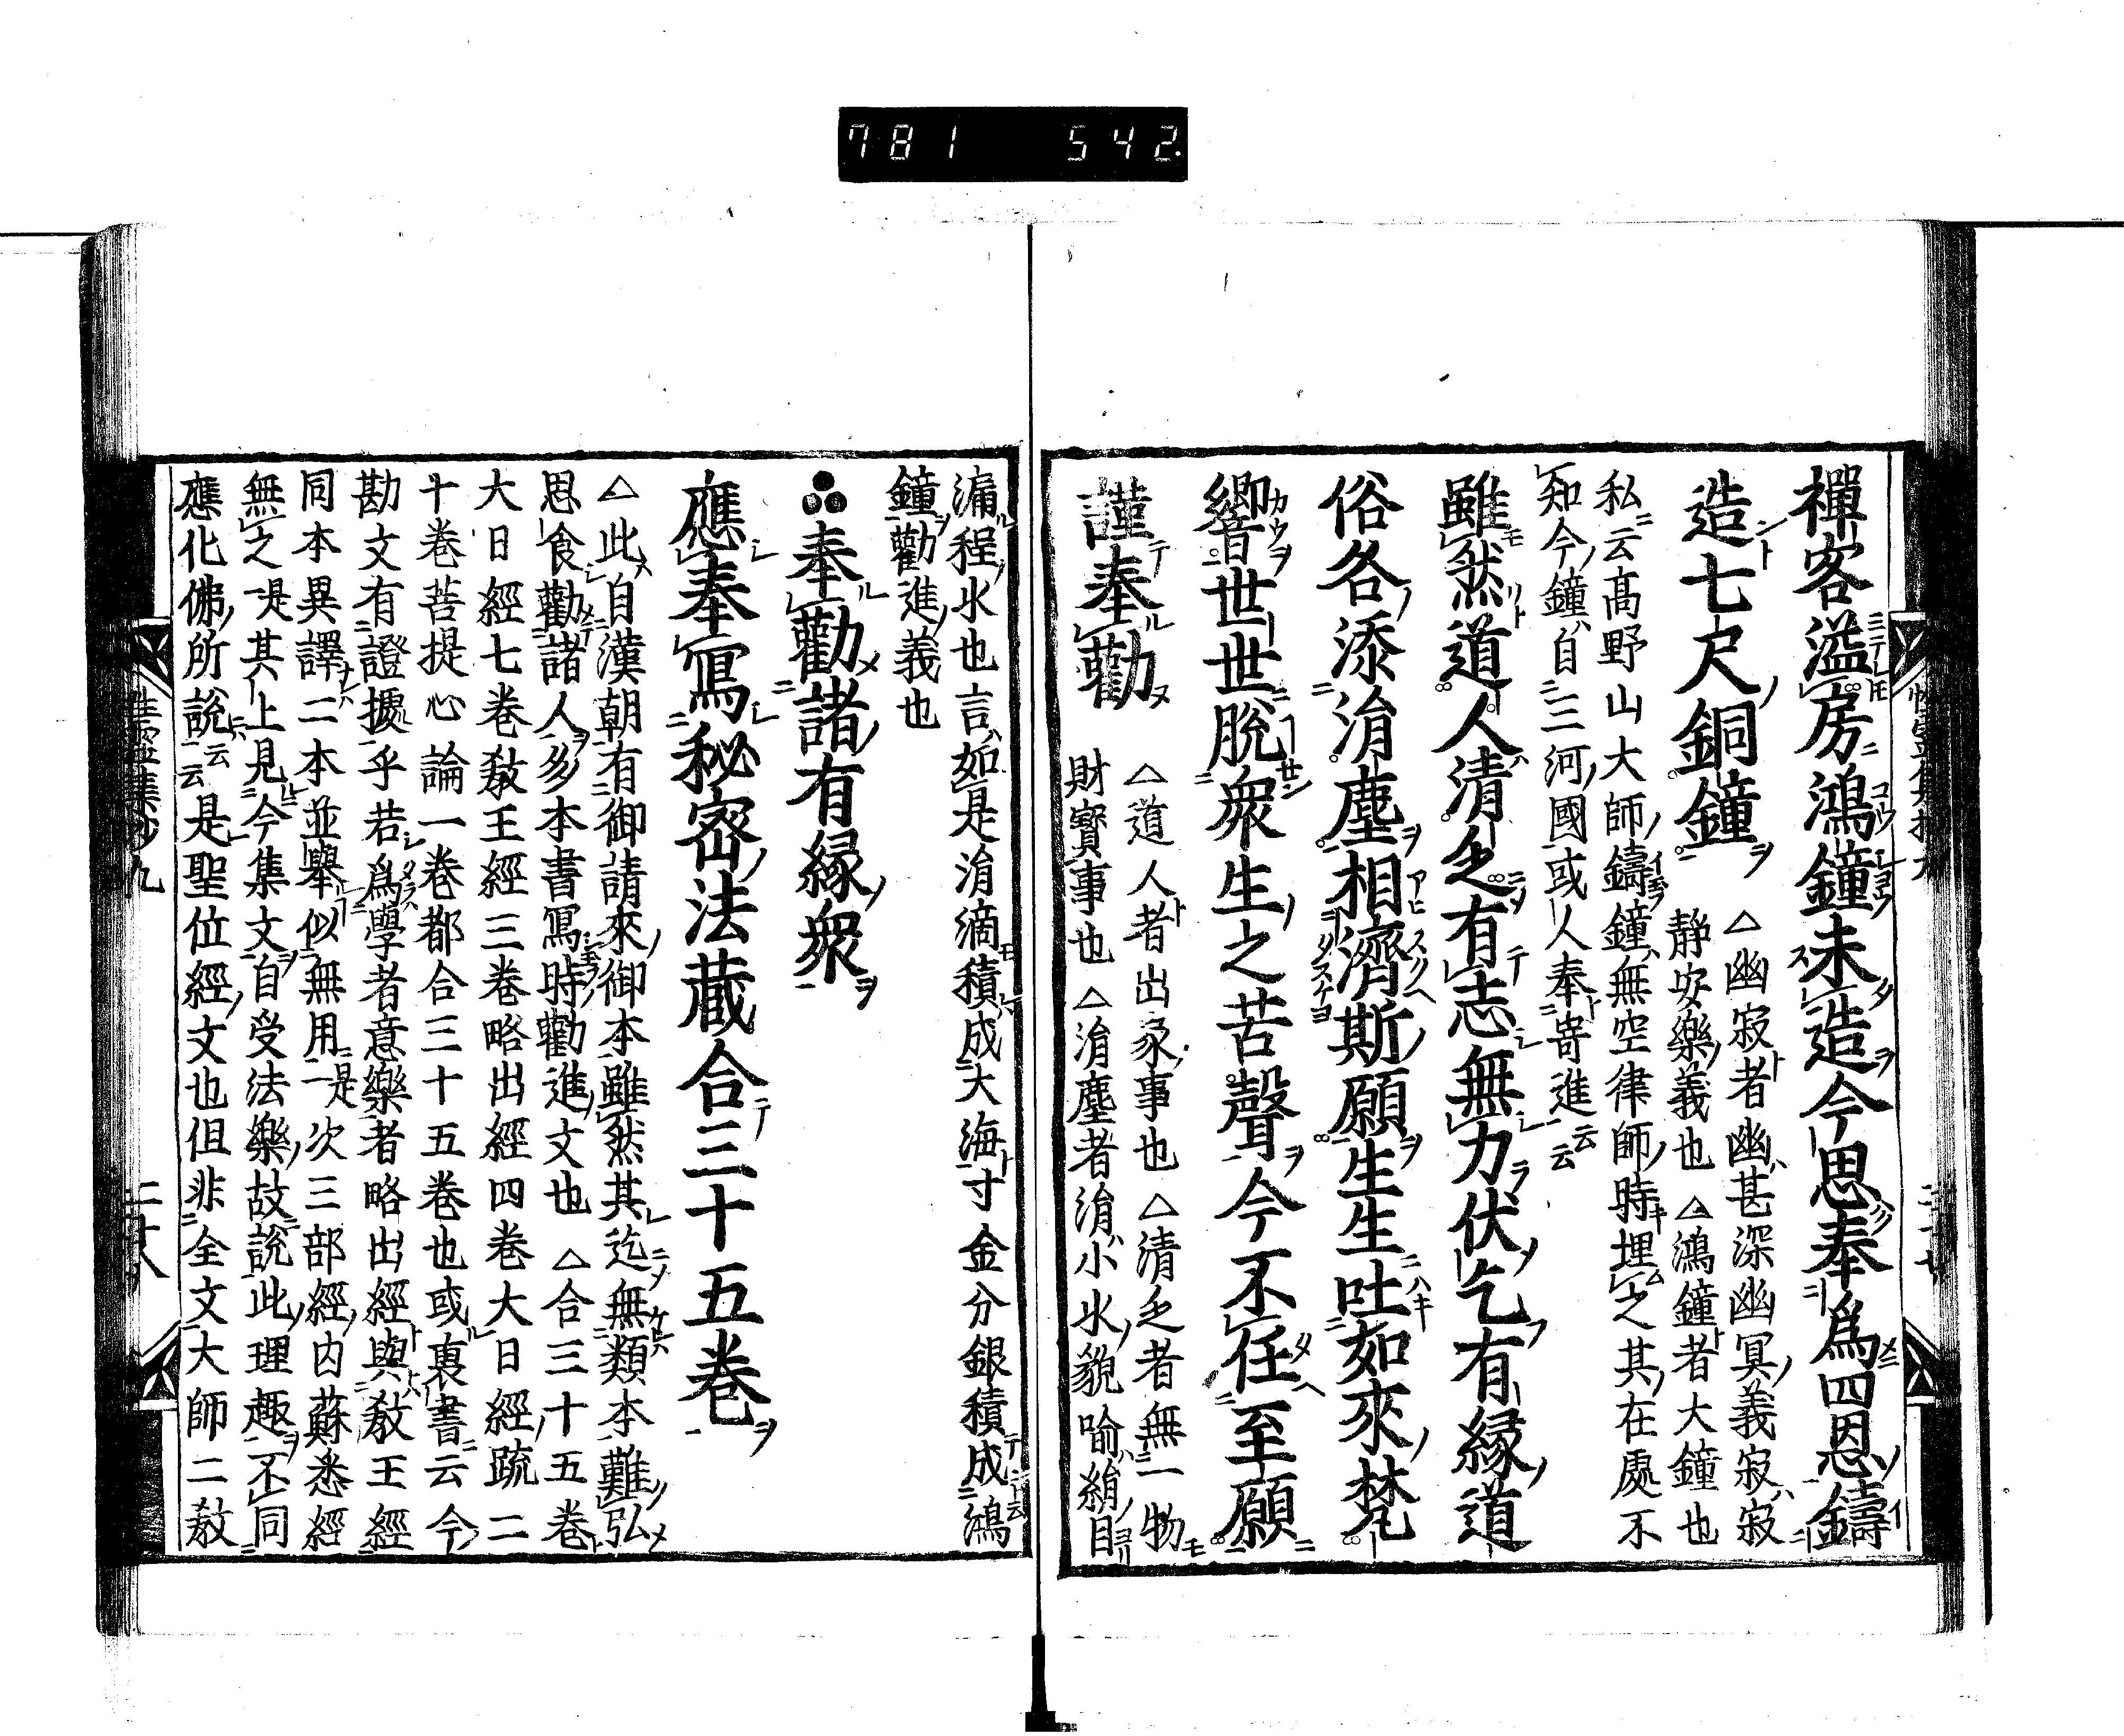 781 542.
禪客溢房鴻鐘未造今思奉爲四恩鑄
造七尺銅鐘
△幽寂者幽甚深幽冥義寂寂
靜安樂義也△鴻鐘者大鐘也
私云髙野山大師鑄鐘無空律師時埋之其在處不
知今鐘自三河國或人奉寄進云云
雖然道人清乏有志無力伏乞有縁道
俗各添涓塵相濟斯願生生吐如來梵
響世世脫衆生之苦聲今不任至願
謹奉勸
△道人者出家事也△清乏者無一物
財寳事也△涓塵者涓小水貌喻絹目
漏程水也言如是涓滴積成大海寸金分銀積成鴻
鐘勸進義也
奉勸諸有縁衆
應奉寫秘密法藏合三十五卷
△此自漢朝有御請來御本雖然其迄無類本難弘
思食勸諸人多本書寫時勸進文也△合三十五卷
大日經七卷教王經三卷略出經四卷大日經疏二
十卷菩提心論一卷都合三十五卷也或裏書云今
勘文有證據乎若爲學者意樂者略出經與教王經
同本異譯二本並舉似無用一是次三部經内蘇悉經
無之一是其上見今集文自受法樂故說此理趣不同
應化佛所說云云是聖位經文也但非全文大師二教
性霊集鈔九
二十八